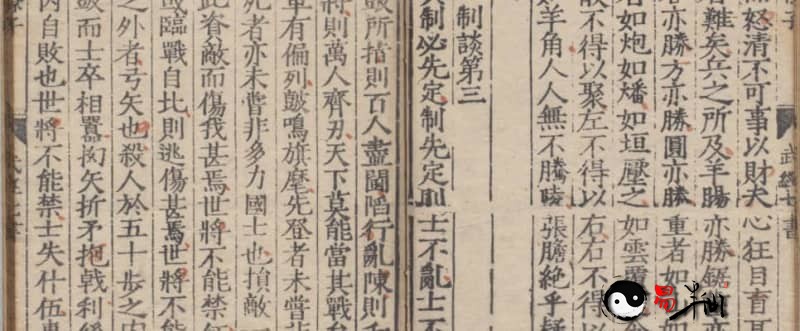 怒清不可事以財夫心狂目盲
難矣兵之所及羊腸亦勝鋸
亦勝方亦勝圓亦勝重者如
者如炮如燔如垣壓之如雲覆
散不得以聚左不得以右右不得以
羊角人人無不騰陵張膽絕乎疑
制談第三
兵制必先定制先定則士不亂士不
鼓所指則百人盡鬪陷行亂陳則千
將則萬人齊刃天下莫能當其戰矣
車有偏列鼓鳴旗麾先登者未嘗非
死者亦未嘗非多力國士也損敵
此資敵而傷我甚焉世將不能禁征
或臨戰自北則逃傷甚焉世將不能
之外者弓矢也殺人於五十步之內
鼓而士卒相囂拗矢折矛抱戟利後
內自敗也世將不能禁士失什伍車
武經七書